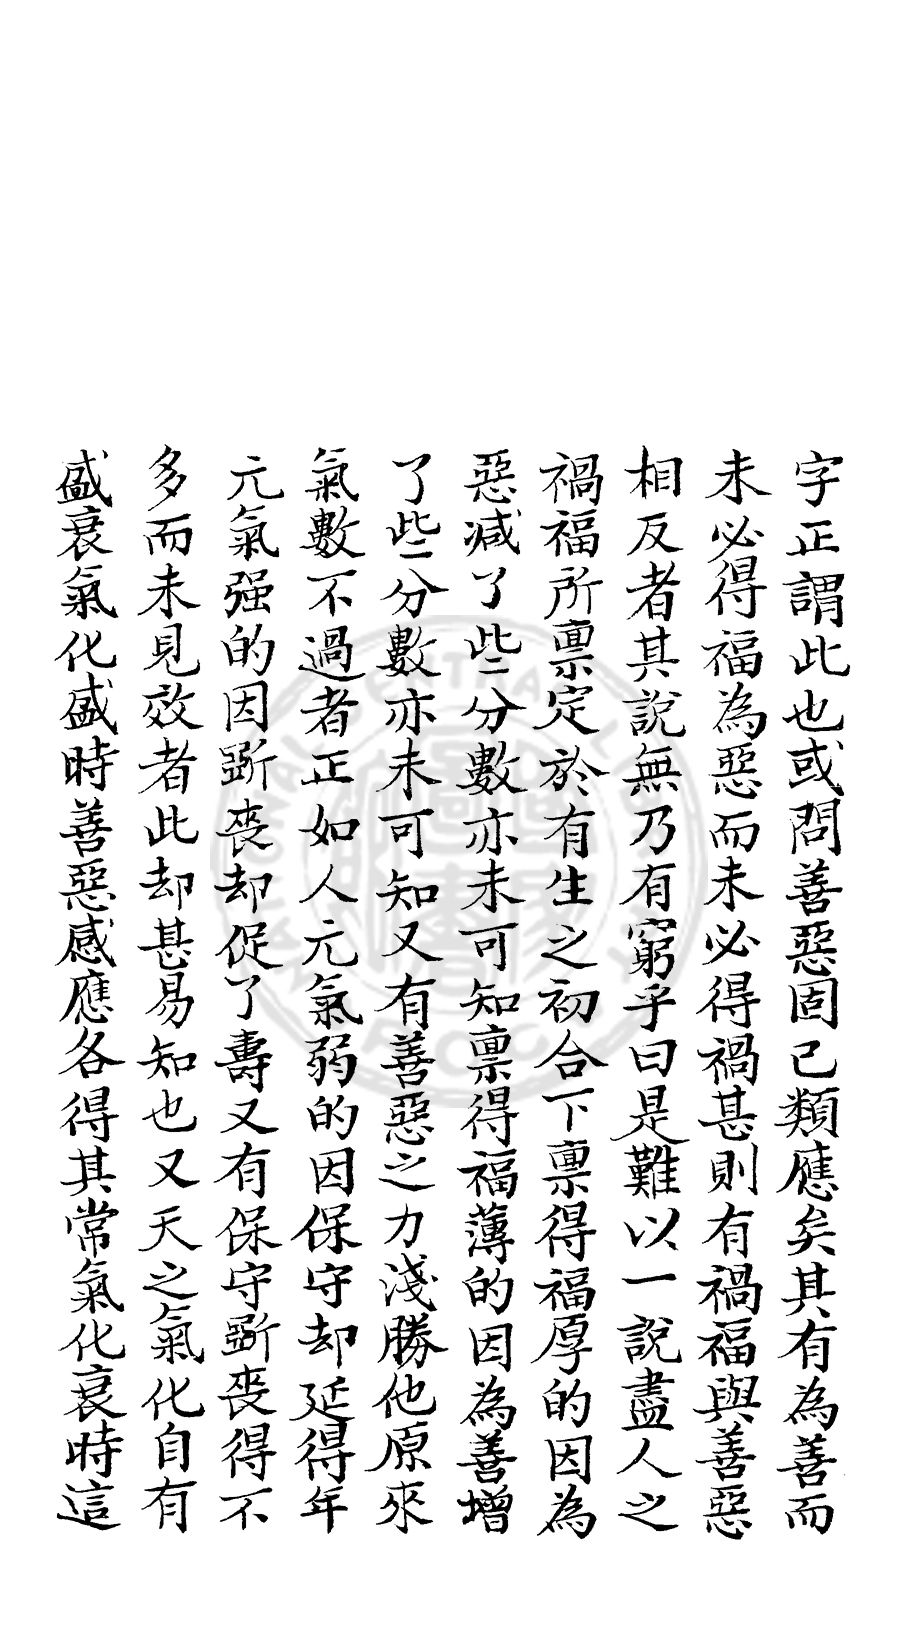 字正謂此也或問善惡固已類應矣其有為善而
未必得福為惡而未必得禍甚則有禍福與善惡
相反者其說無乃有窮乎曰是難以一說盡人之
禍福所禀定於有生之初合下禀得福厚的因為
惡减了些分數亦未可知禀得福薄的因為善增
了些分數亦未可知又有善惡之力淺勝他原來
氣數不過者正如人元氣弱的因保守却延得年
元氣强的因斵喪却促了壽又有保守斵喪得不
多而未見效者此却甚易知也又天之氣化自有
盛衰氣化盛時善惡感應各得其常氣化衰時這